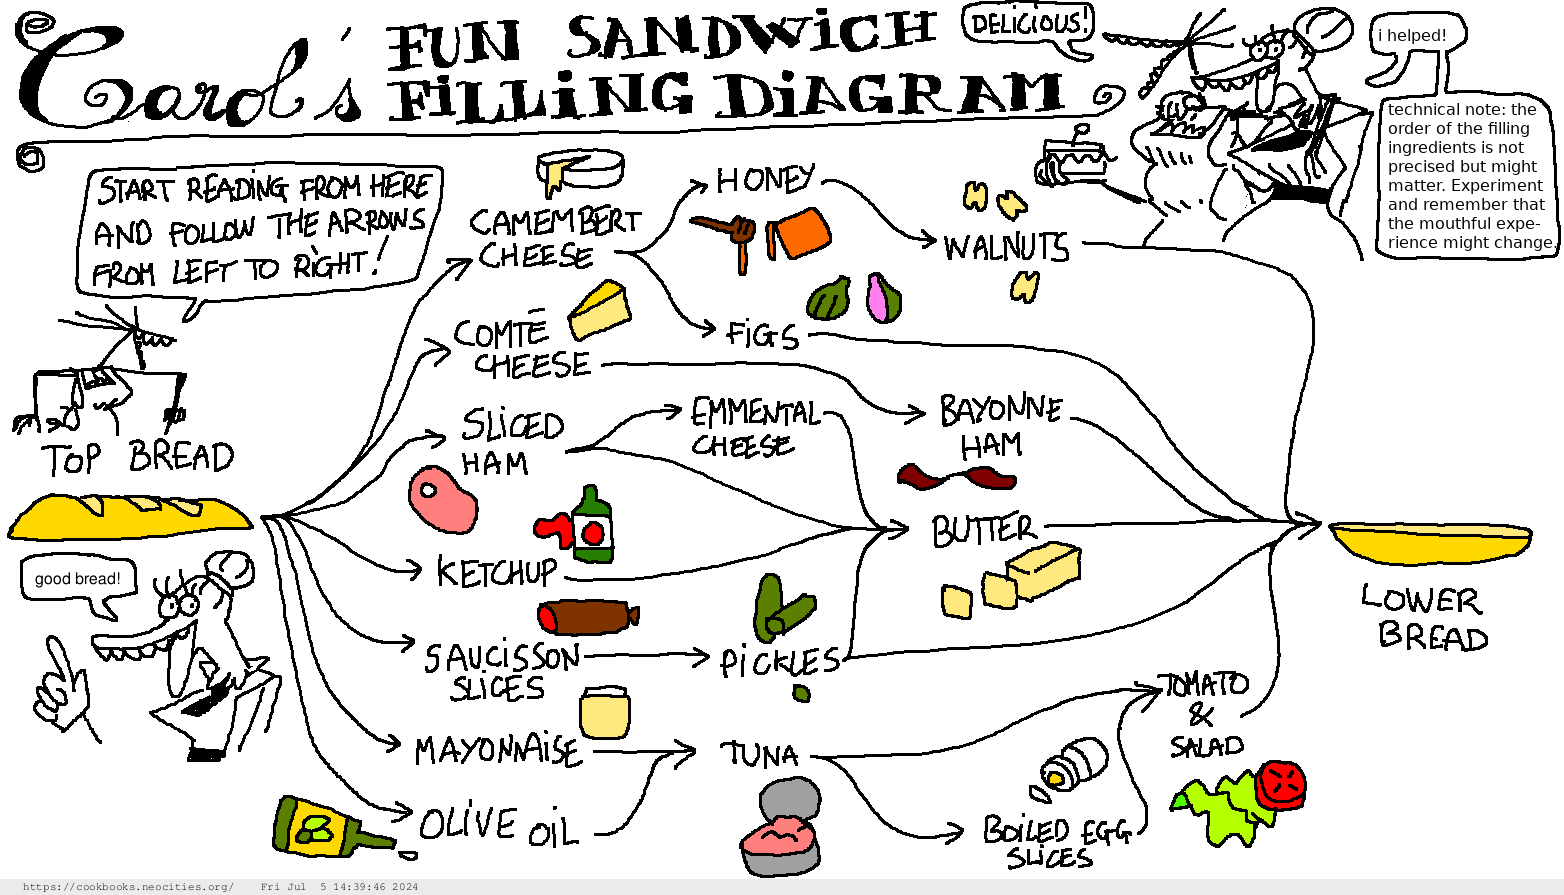 Carol's FUN SANDWICH
FILLING DIAGRAM
DELICIOUS!
i helped!
technical note: the
order of the filling
ingredients is not
precised but might
matter. Experiment
and remember that
the mouthful expe-
rience might change.
START READING FROM HERE
AND FOLLOW THE ARROWS
FROM LEFT TO RIGHT!
TOP BREAD
good bread!
CAMEMBERT
CHEESE
HONEY
WALNUTS
FIGS
COMTÉ
CHEESE
BAYONNE
HAM
SLICED
HAM
EMMENTAL
CHEESE
BUTTER
KETCHUP
SAUCISSON
SLICES
PICKLES
MAYONNAISE
TUNA
TOMATO
&
SALAD
OLIVE OIL
BOILED EGG
SLICES
LOWER
BREAD
https://cookbooks.neocities.org/ Fri Jul 5 14:39:46 2024